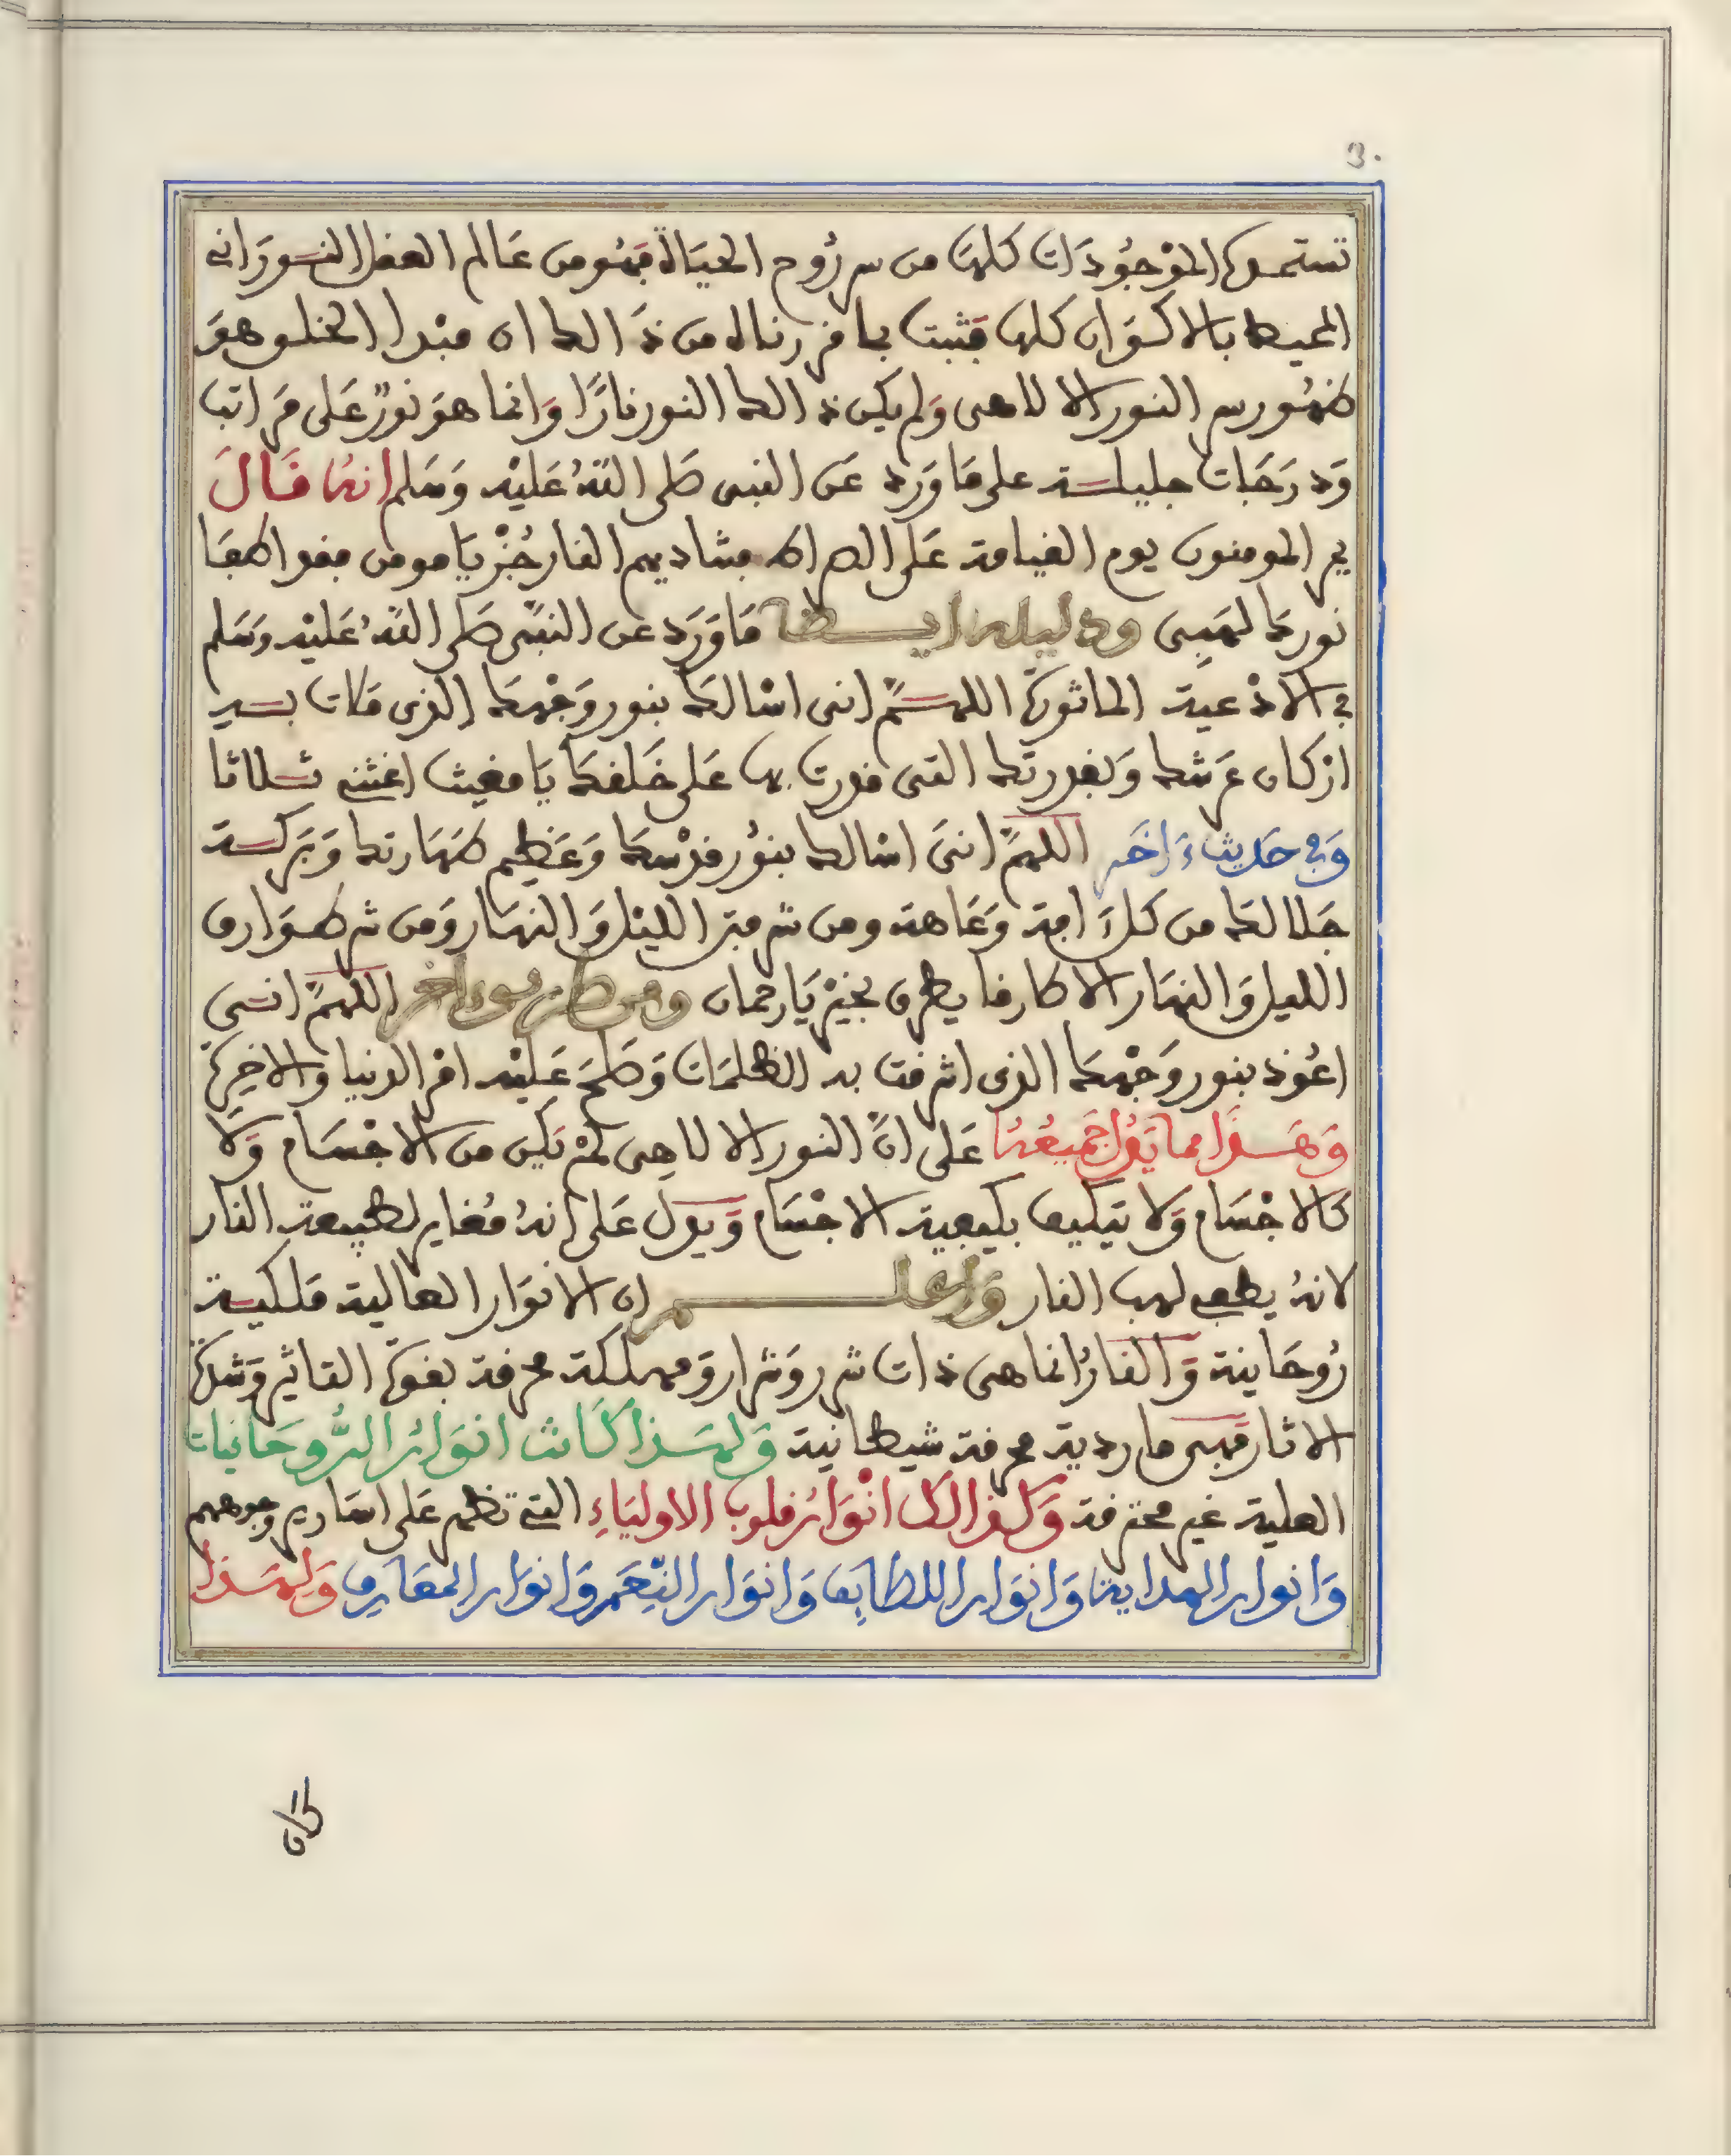 3.
تستمده الموجودات كلها من سر روح الحياة فهو من عالم العقل النوراني
المحيط بالاكوان كلها فثبت بما قررناه من ذالك ان مبدا الخلق هو
ظهور سر النور الالاهى ولم يكن ذالك النور نارًا وانما هو نورٌ على مراتب
ودرجات جليلة على ما ورد عن النبى صلى اللهُ عليه وسلم انه قال
يمر المومنون يوم القيامة على الصراط فتناديهم النار جُزْ يا مومن فقد اطفا
نورك لهبى ودليله ايضا ما ورد عن النبى صلى اللهُ عليه وسلم
فى الادعية الماثورة اللهمَّ انى اسالك بنور وجهك الذى ملات به
اركان عرشك وبقدرتك التى قدرت بها على خلقك يا مغيث اغثنى ثلاثا
وفى حديث ءاخر اللهمَّ انى اسالك بنُور قدْسك وعظيم طهارتك وبركة
جلالك من كل ءافة وعاهة ومن شر فتر الليل والنهار ومن شر طوارق
الليل والنهار الا طارقا يطرق بخير يا رحمان ومن طريق ءاخر اللهمَّ انى
اعُوذ بنور وجْهك الذى اشرقت به الظلمات وصلح عليْه امر الدنيا والاخرة
وهذا مما يدل جميعُهُ على انَّ النور الالاهى لمْ يكن من الاجْسام ولا
كالاجْسام ولا يتكيف بكيفية الاجْسام ويدل على انهُ مُغاير لطبيعة النار
لانهُ يطفى لهب النار واعلم ان الانوار العالية ملكية
رُوحانية والنارُ انما هى ذات شرر وشرار ومهلكة محرقة بقوة التاثير وشدة
الاثار فهى ماردية محرقة شيطانية ولهذا كانت انوارُ الرُّوحانيات
العلية غير محترقة وكذالك انْوارُ قلوب الاولياءِ التى تظهر على اسارير وجوههم
وانوار الهداية وانوار اللطايف وانوار النِّعم وانوار المعارف ولهذا
كان